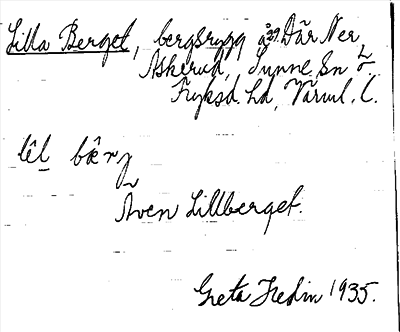 Lilla Berget, bergsrygg å Där Ner
Askerud, Sunne Sn
Fryksd. Hd, Värml. l.
lêl bærj
Även Lillberget.
Greta Hedin 1935.